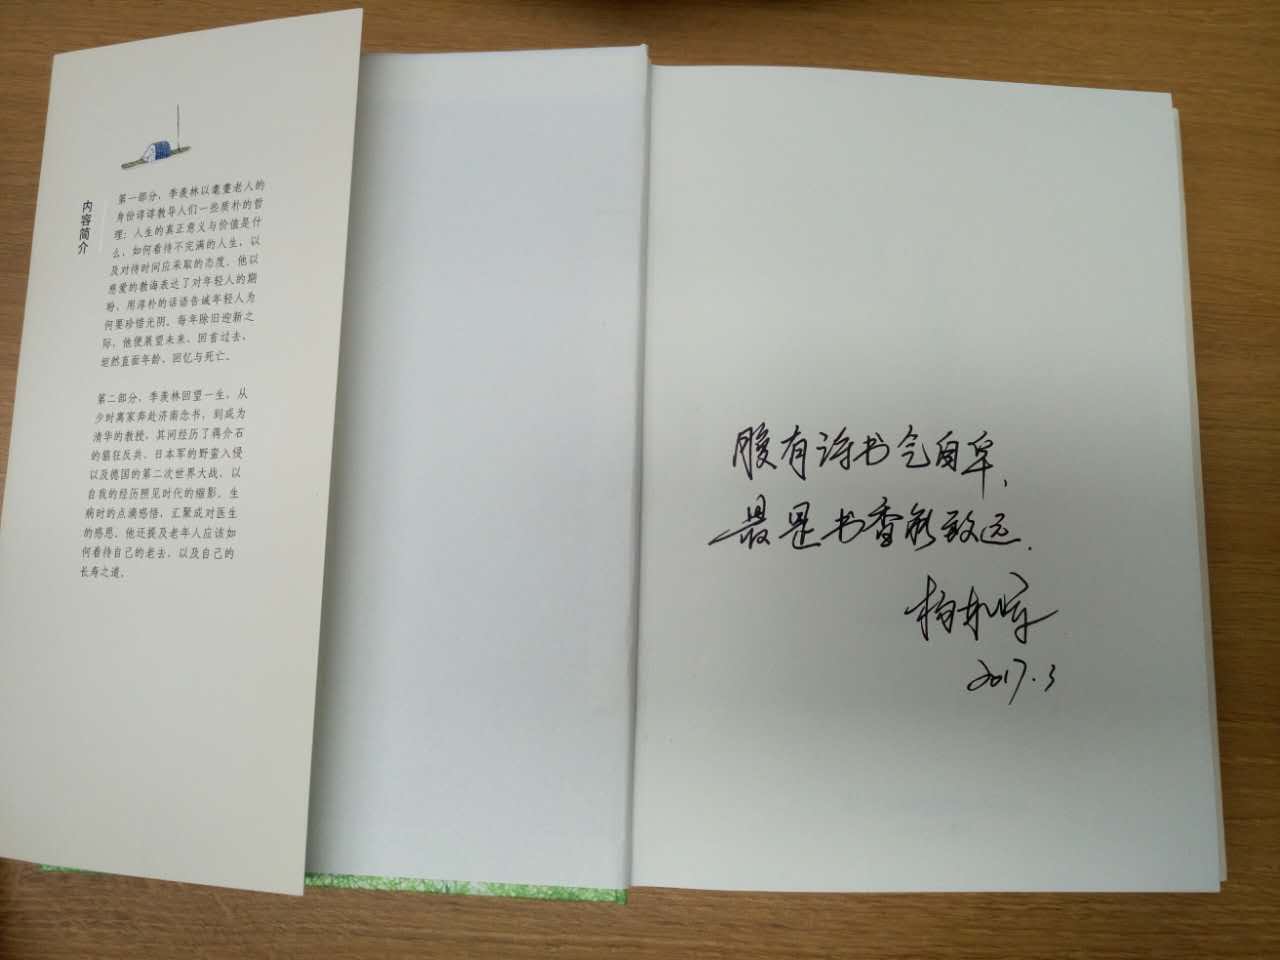 内容简介
第一部分，季羡林以耄耋老人的
身份谆谆教导人们一些质朴的哲
理：人生的真正意义与价值是什
么、如何看待不完满的人生，以
及对待时间应采取的态度。他以
慈爱的教诲表达了对年轻人的期
盼，用淳朴的话语告诫年轻人为
何要珍惜光阴。每年除旧迎新之
际，他便展望未来、回首过去，
坦然直面年龄、回忆与死亡。
第二部分，季羡林回望一生，从
少时离家奔赴济南念书，到成为
清华的教授，其间经历了蒋介石
的猖狂反共、日本军的野蛮入侵
以及德国的第二次世界大战，以
自我的经历照见时代的缩影。生
病时的点滴感悟，汇聚成对医生
的感恩。他还提及老年人应该如
何看待自己的老去，以及自己的
长寿之道。
腹有诗书气自华，
最是书香能致远.
2017.3